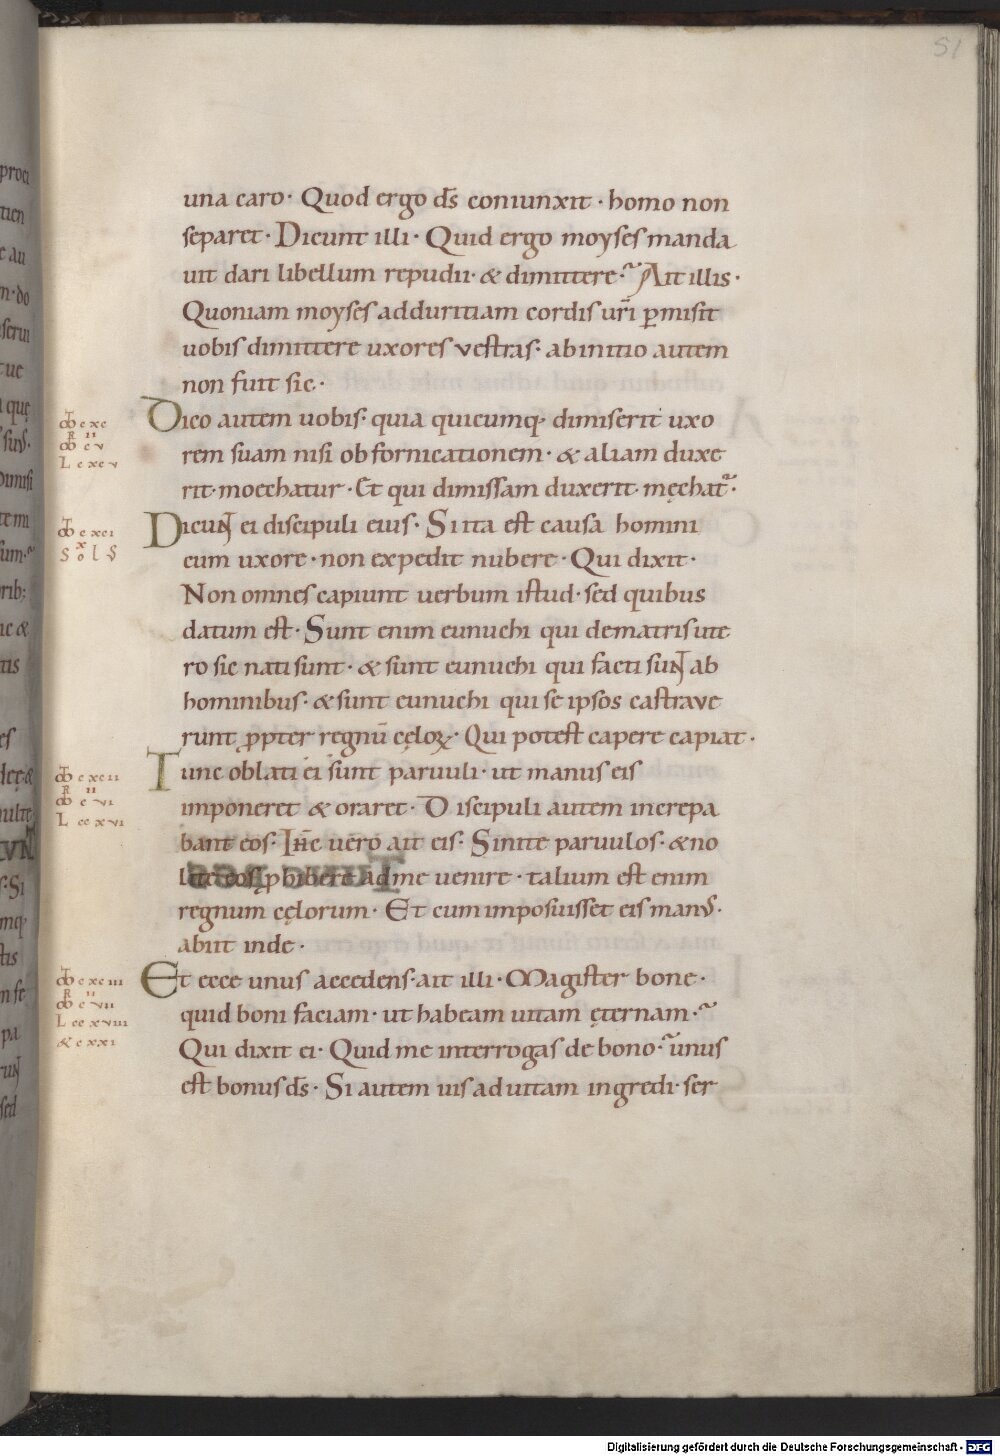 51
una caro· Quod ergo d̄s coniunxit · homo non
separet · Dicunt illi · Quid ergo moyses manda
uit dari libellum repudii · & dimittere· Ait illis ·
Quoniam moyses ad duritiam cordis ur̄i ꝑmisit
uobis dimittere uxores vestras· ab initio autem
non fuit sic·
Dico autem uobis· quia quicumq; dimiserit uxo
rem suam nisi ob fornicationem · & aliam duxe
rit· moechatur · Et qui dimissam duxerit· męchat᷑·
Dicunt ei discipuli eius · Si ita est causa homini
cum uxore · non expedit nubere · Qui dixit ·
Non omnes capiunt uerbum istud· sed quibus
datum est · Sunt enim eunuchi qui de matris ute
ro sic nati sunt · & sunt eunuchi qui facti sunt ab
hominibus · & sunt eunuchi qui se ipsos castrave
runt ꝓpter regnū cęloꝝ · Qui potest capere capiat ·
Tunc oblati ei sunt paruuli · ut manus eis
imponeret & oraret · Discipuli autem increpa
bant eos · Ih̄c uero ait eis · Sinite paruulos · & no
lite eos ꝓhibere ad me uenire · talium est enim
regnum cęlorum · Et cum imposuisset eis man᷒ ·
abiit inde ·
Et ecce unus accedens· ait illi · Magister bone ·
quid boni faciam · ut habeam uitam ęternam ·
Qui dixit ei · Quid me interrogas de bono · unus
est bonus d̄s · Si autem uis ad uitam ingredi · ser
Digitalisierung gefördert durch die Deutsche Forschungsgemeinschaft - DFG